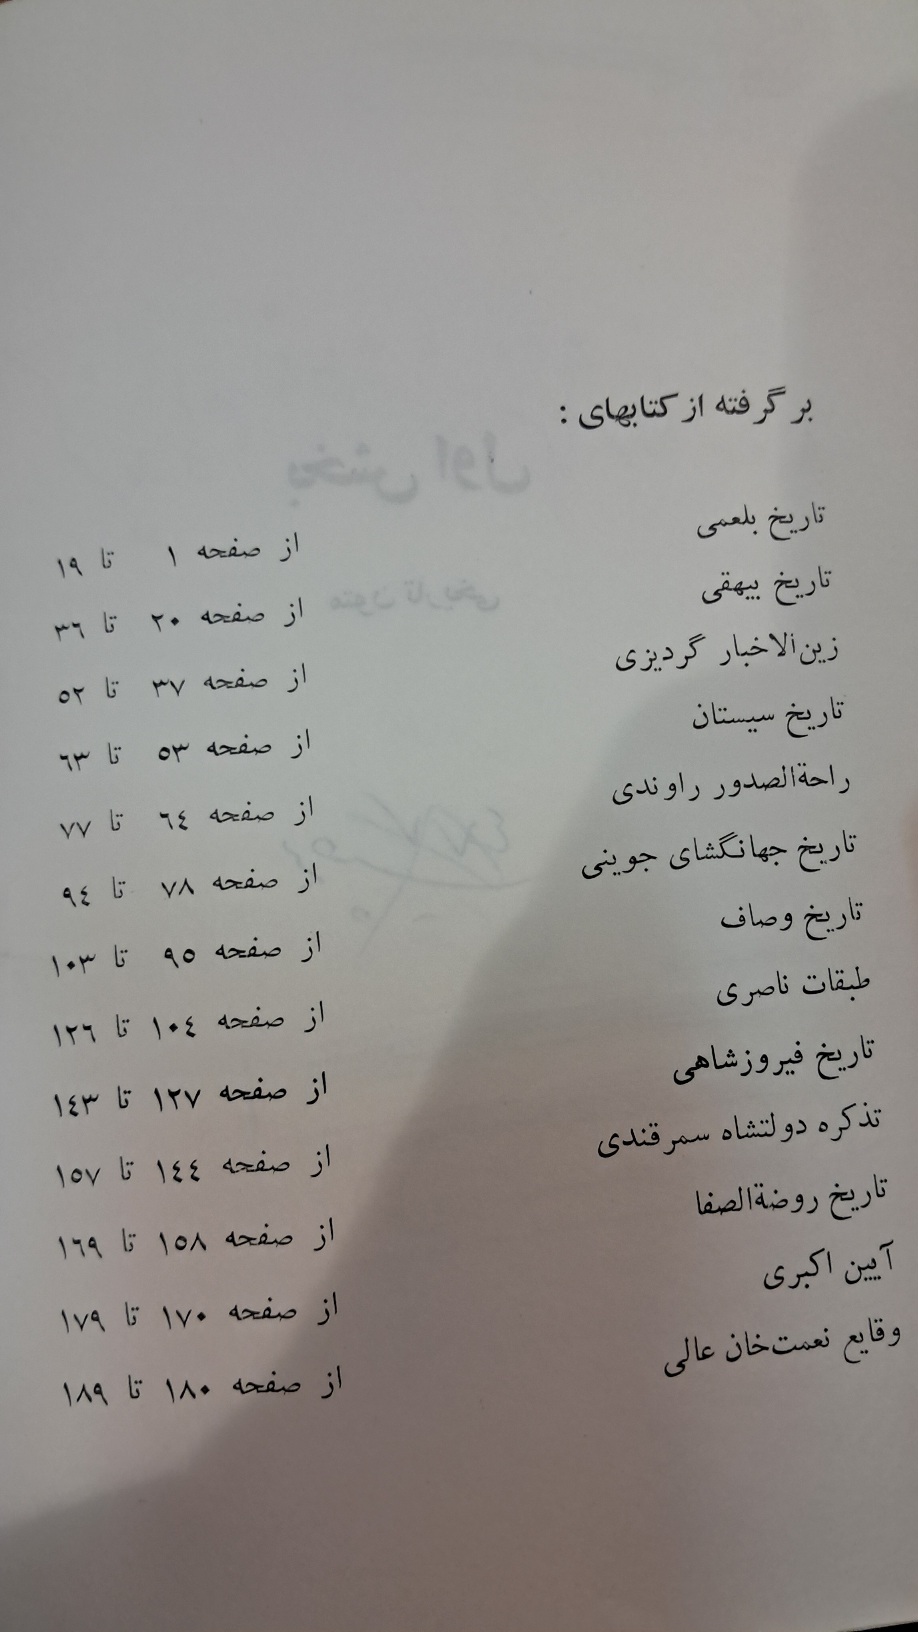 بر گرفته از کتابهای :
تاریخ بلعمی از صفحه ۱ تا ۱۹
تاریخ بیهقی از صفحه ۲۰ تا ۳٦
زین‌الاخبار گردیزی از صفحه ۳۷ تا ۵۲
تاریخ سیستان از صفحه ۵۳ تا ٦۳
راحة‌الصدور راوندی از صفحه ٦٤ تا ۷۷
تاریخ جهانگشای جوینی از صفحه ۷۸ تا ۹٤
تاریخ وصاف از صفحه ۹۵ تا ۱۰۳
طبقات ناصری از صفحه ۱۰٤ تا ۱۲٦
تاریخ فیروزشاهی از صفحه ۱۲۷ تا ۱٤۳
تذکره دولتشاه سمرقندی از صفحه ۱٤٤ تا ۱۵۷
تاریخ روضة‌الصفا از صفحه ۱۵۸ تا ۱٦۹
آیین اکبری از صفحه ۱۷۰ تا ۱۷۹
وقایع نعمت‌خان عالی از صفحه ۱۸۰ تا ۱۸۹
بخش اول
متون تاریخی